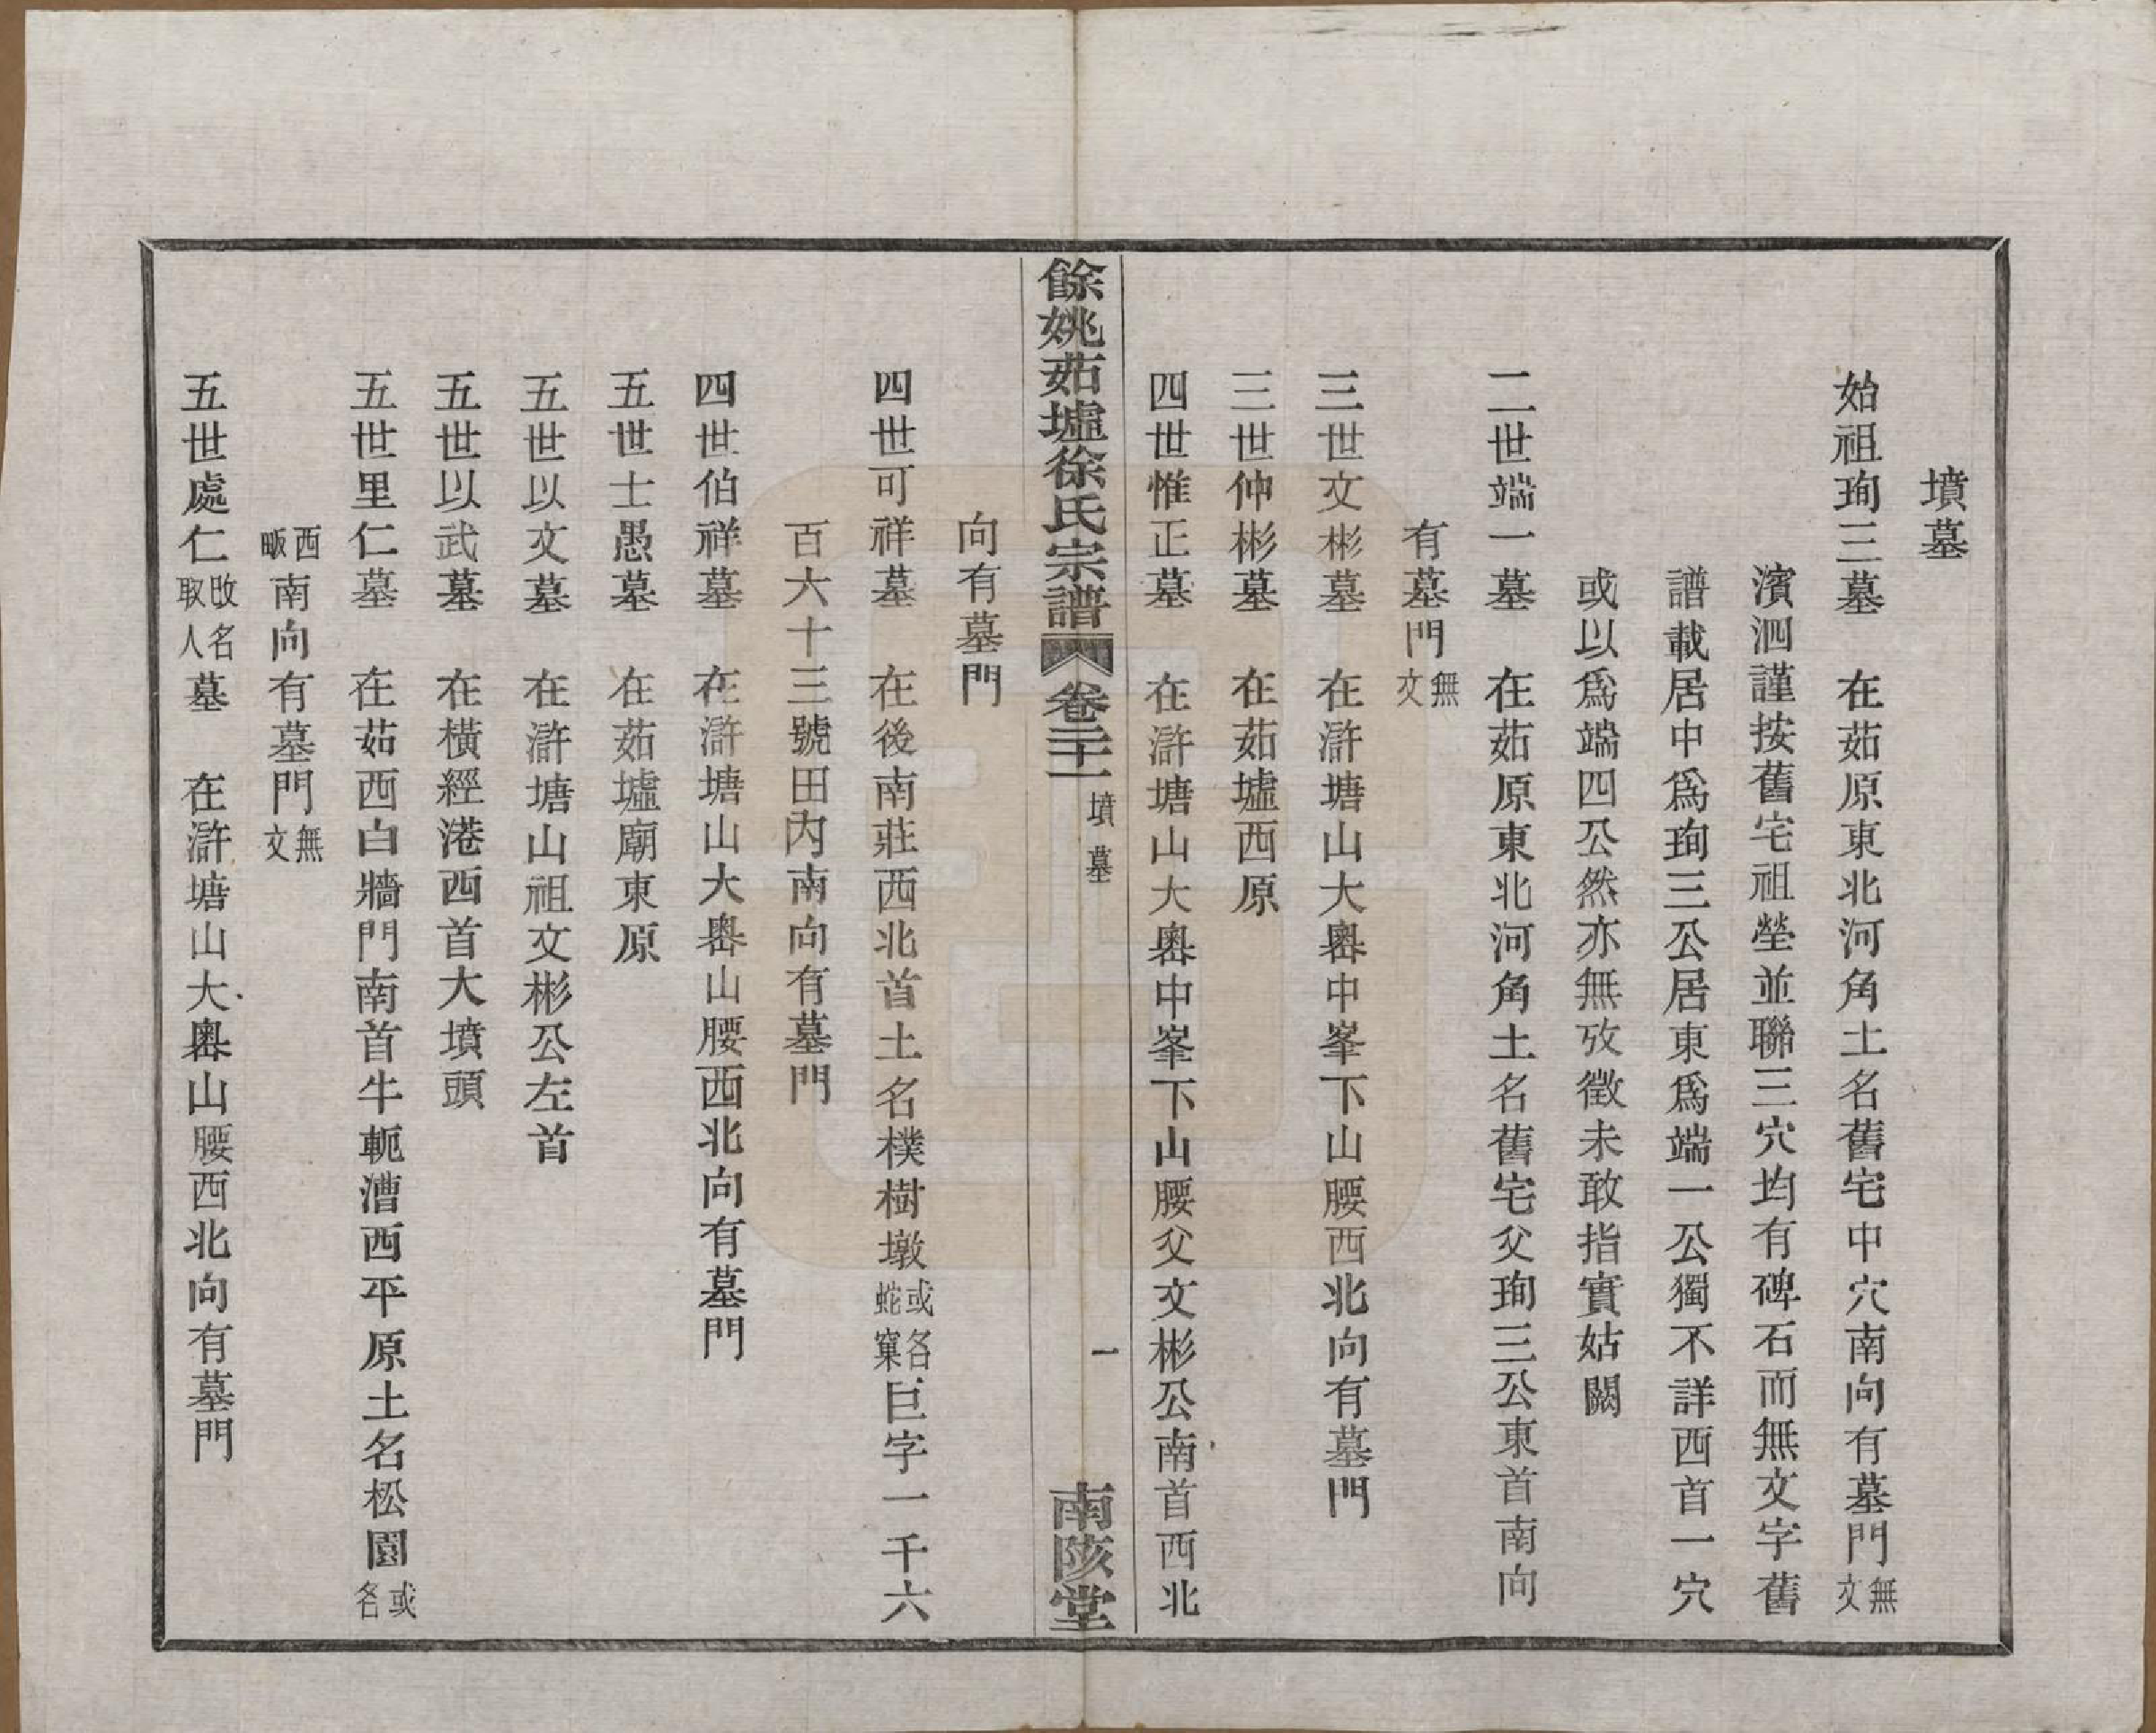 墳墓
始祖珣三墓　在茹原東北河角土名舊宅中穴南向有墓門無文
濱泗謹按舊宅祖塋並聯三穴均有碑石而無文字舊
譜載居中爲珣三公居東爲端一公獨不詳西首一穴
或以爲端四公然亦無攷徵未敢指實姑闕
二世端一墓　在茹原東北河角土名舊宅父珣三公東首南向
有墓門無文
三世文彬墓　在滸塘山大嶴中峯下山腰西北向有墓門
三世仲彬墓　在茹墟西原
四世惟正墓　在滸塘山大嶴中峯下山腰父文彬公南首西北
餘姚茹墟徐氏宗譜　卷二十一　墳墓　一　南陔堂
向有墓門
四世可祥墓　在後南莊西北首土名樸樹墩或名蛇窠巨字一千六
百六十三號田內南向有墓門
四世伯祥墓　在滸塘山大嶴山腰西北向有墓門
五世士愚墓　在茹墟廟東原
五世以文墓　在滸塘山祖文彬公左首
五世以武墓　在橫經港西首大墳頭
五世里仁墓　在茹西白牆門南首牛軛漕西平原土名松園或名
西畈南向有墓門無文
五世處仁改名取人墓　在滸塘山大嶴山腰西北向有墓門